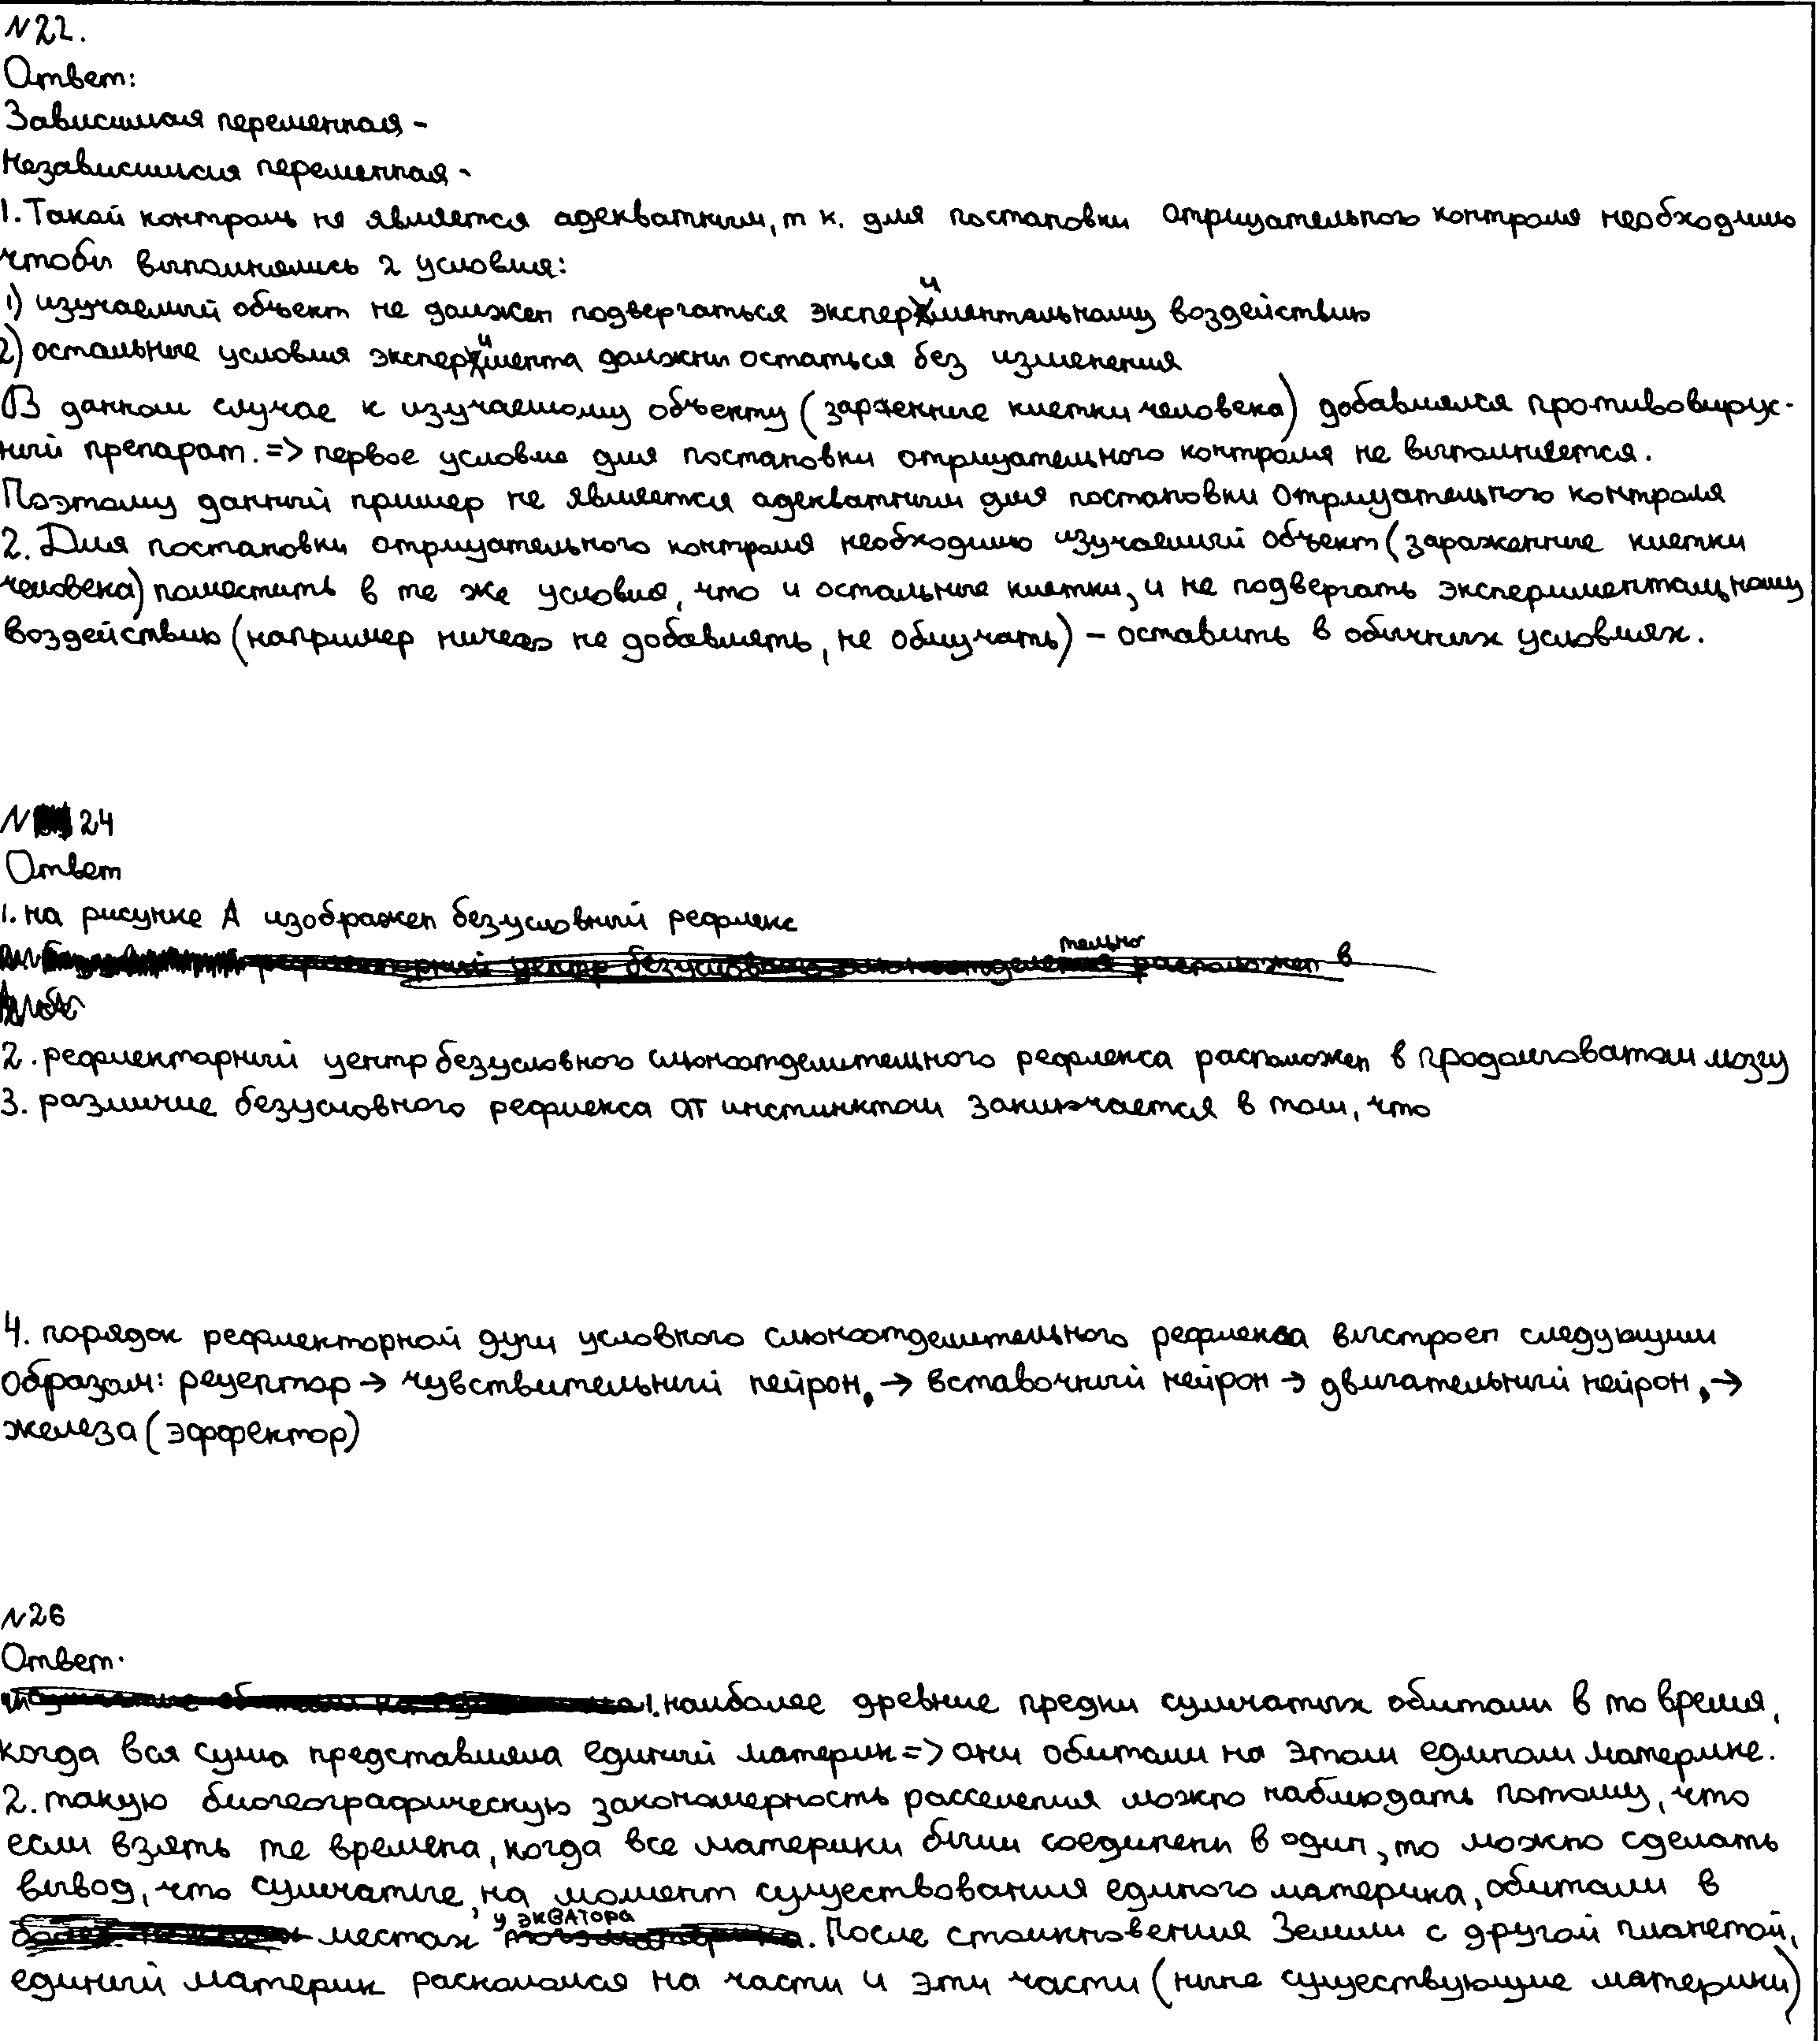 N22.
Ответ:
Зависимая переменная -
Независимися переменная -
1. Такой контроль не является адекватным, т к. для постановки отрицательного контроля необходимо
чтобы выполнялись 2 условия:
1) изучаемый объект не должен подвергаться экспериментальному воздействию
2) остальные условия эксперимента должны остаться без изменения
В данном случае к изучаемому объекту (зарженные клетки человека) добавлялся противовирус-
ный препарат. => первое условие для постановки отрицательного контроля не выполняется.
Поэтому данный пример не является адекватным для постановки отрицательного контроля
2. Для постановки отрицательного контроля необходимо изучаемый объект (зараженные клетки
человека) поместить в те же условия, что и остальные клетки, и не подвергать экспериментальному
воздействию (например ничего не добавлять, не облучать) - оставить в обычных условиях.
N 24
Ответ
1. на рисунке А изображен безусловный рефлекс
рефлекторный центр безусловного расположен в
2. рефлектарный центр безусловного слюноотделительного рефлекса расположен в продолговатом мозгу
3. различие безусловного рефлекса от инстинктом заключается в том, что
4. порядок рефлекторной дуги условного слюноотделительного рефлекса выстроен следующим
образом: рецептор → чувствительный нейрон, → вставочный нейрон → двигательный нейрон, →
железа (эффектор)
N26
Ответ.
1. наиболее древние предки сумчатых обитали в то время,
когда вся суша представляла единый материк => они обитали на этом едином материке.
2. такую биогеографическую закономерность расселения можно наблюдать потому, что
если взять те времена, когда все материки были соединены в один, то можно сделать
вывод, что сумчатые, на момент существования единого материка, обитали в
местах у экватора. После столкновения Земли с другой планетой,
единый материк раскололся на части и эти части (ныне существующие материки)